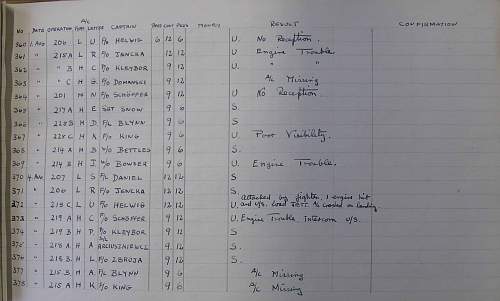 A/C
NO DATE OPERATOR TYPE LETTER CAPTAIN PACK CONT PACK MONEY RESULT CONFIRMATION
360 1. Aug 206 L U P/O HELWIG 6 12 6 U. No Reception.
361 " 215A L R F/O JANCKA 12 12 U Engine Trouble
362 " " B H C P/O KLEYBOR 9 12 U. " "
363 " " C H G. F/O DOMANSKI 9 12 A/c Missing
364 " 201 H N F/O SCHÖFFER 9 12 U No Reception.
365 " 219A H E SGT SNOW 9 6 S.
366 " 228B H D. F/L BLYNN 9 6 S
367 " 228C H K F/O KING 9 6 U. Poor Visibility.
368 " 214A H B W/O BETTLES 9 6 S.
369 " 214B H J W/O BOWDER 9 6 U. Engine Trouble.
370 4. Aug 207 L S F/L DANIEL 12 12 S
371 " 206 L R F/O JANCKA 12 12 S.
372 " 219C L U P/O HELWIG 12 12 U. Attacked by fighter, 1 engine hit and U/S. Load JETT. A/c crashed on landing
373 " 219A H C F/O SCHOFFER 9 12 U. Engine Trouble Intercom U/S.
374 " 219B H P. P/O KLEYBOR 9 12 S
375 " 218A H A S/L ARCIUSZKIEWICZ 9 12 S.
376 " 218B. H L. P/O ZBROJA 9 12 S.
377 " 215B. H A. F/L BLYNN 9 6 A/c Missing
378 " 215A H K F/O KING 9 6 A/c Missing